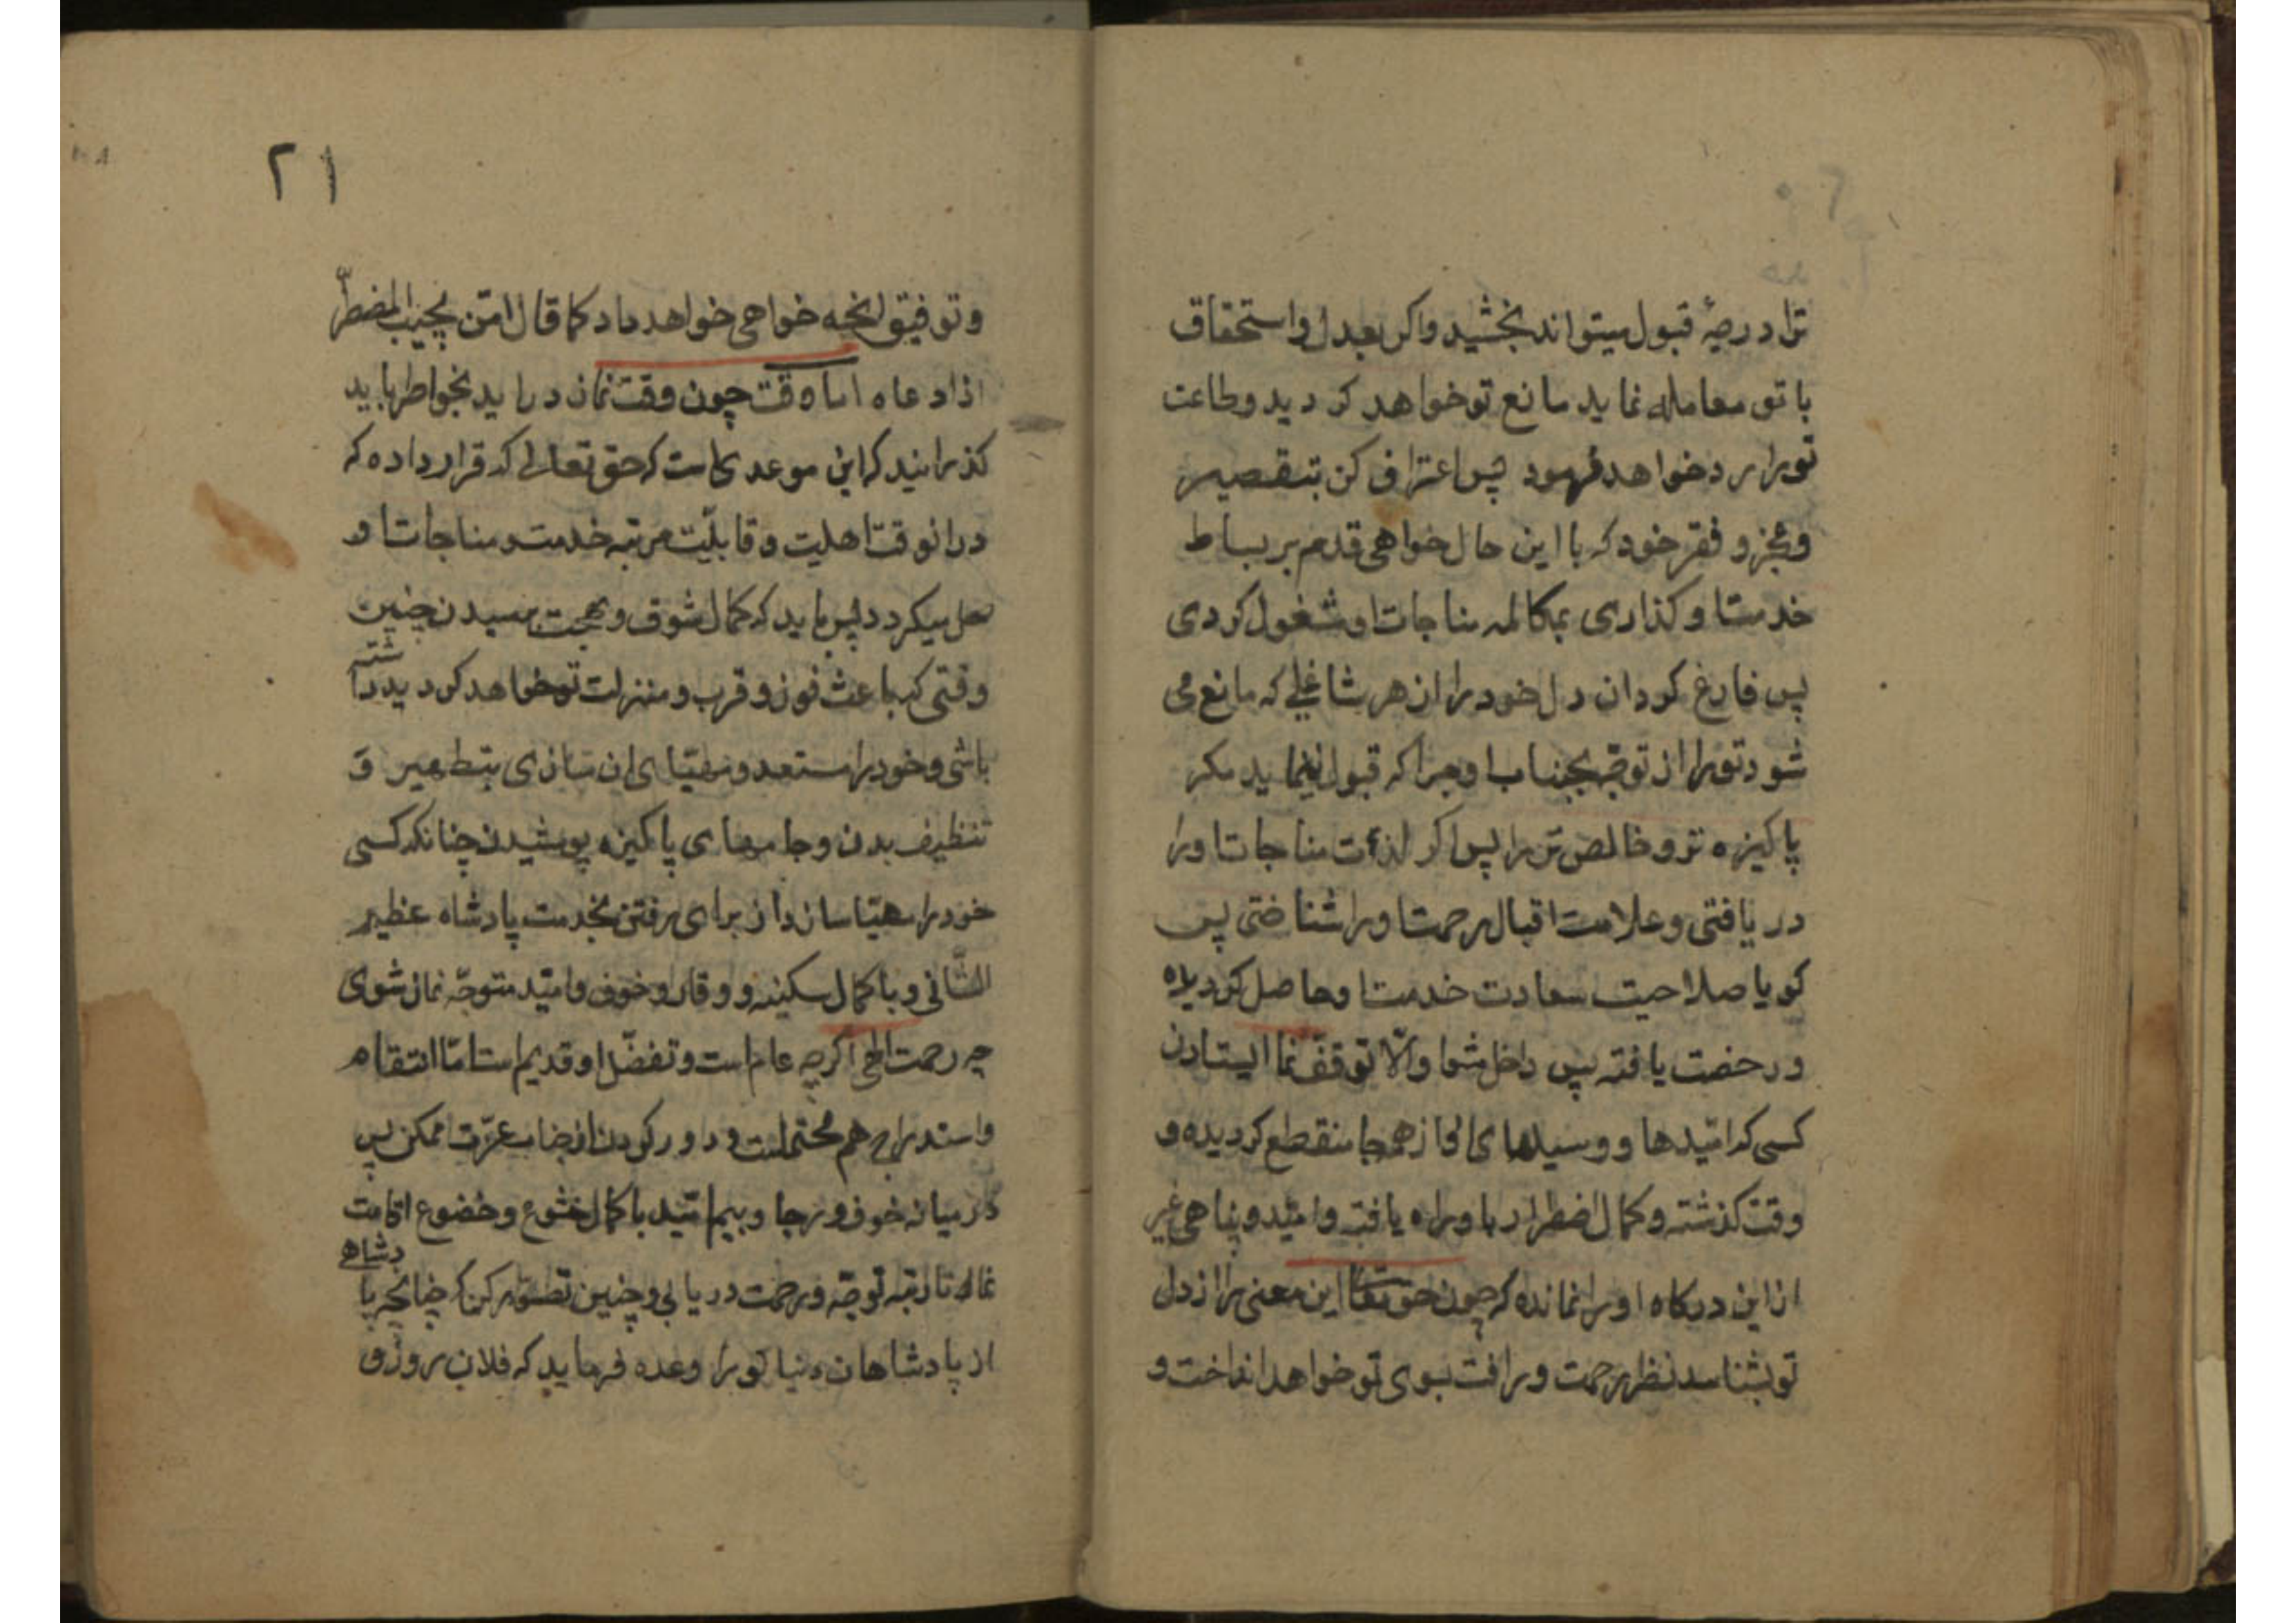 ترا درجهٔ قبول میتواند بخشید واکر بعدل واستحقاق
با تو معامله نماید مانع تو خواهد کردید وطاعت
تورا رد خواهد فرمود پس اعتراف کن بتقصیر
وعجز و فقر خود که با این حال خواهی قدم بر بساط
خدمت او کذاری بمکالمه مناجات او مشغول کردی
پس فارغ کردان دل خود را از هر شاغلی که مانع می
شود تورا از توجّه بجناب او چرا که قبول نمینماید مکر
پاکیزه تر و خالص تر را پس اکر لذت مناجات اورا
در یافتی و علامت اقبال رحمت اورا شناختی پس
کویا صلاحیت سعادت خدمت او حاصل کردیده
ورخصت یافته پس داخل شو والّا توقف نما ایستادن
کسی که امّیدها و وسیلهای او از همه جا منقطع کردیده و
وقت کذشته و کمال اضطرار باو راه یافته و امّید و پناهی غیر
از این درکاه او را نمانده که چون حق تعا این معنی را از دل
تو بشناسد نظر رحمت و رافت بسوی تو خواهد انداخت و
۲۱
وتوفیق انچه خواهی خواهد داد کما قال امّن یجیب المضطرّ
اذا دعاه اما وقت چون وقت نماز در اید بخاطر باید
کذرانید که این موعدی است که حق تعالی قرار داده که
در انوقت اهلیت و قابلیّت مرتبه خدمت و مناجات او
حل میکردد پس باید که کمال شوق و بهجت رسیدن چنین
وقتی که باعث فوز و قرب و منزلت تو خواهد کردید داشته
باشی و خود را مستعد و مهیّای ان سازی بتطهیر و
تنظیف بدن و جامهای پاکیزه پوشیدن چنانکه کسی
خود را مهیّا سازد از برای رفتن بخدمت پادشاه عظیم
الشّانی و با کمال سکینه و وقار و خوف و امّید متوجّه نماز شوی
چه رحمت الهی اکرچه عام است و تفضّل او قدیم است امّا انتقام
و استدراج هم محتملست و دور کردن از جناب عزّت ممکن پس
در میانه خوف و رجا و بیم و امّید با کمال خشوع و خضوع اقامت
نما تا رتبه توجّه و رحمت در یابی و چنین تصوّر کن که چنانچه پادشاهی
از پادشاهان دنیا تو را وعده فرماید که فلان روز و